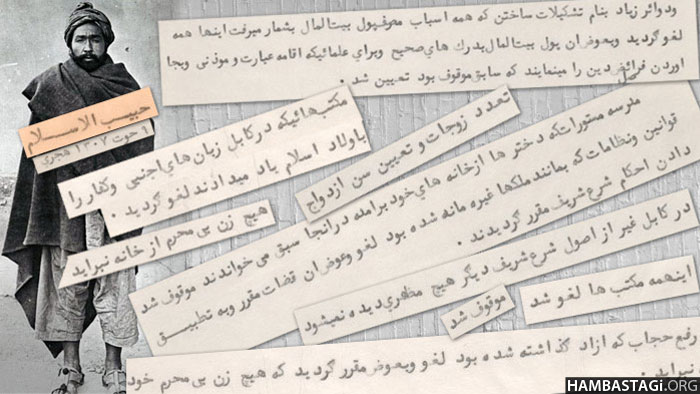 ودوائر زیاد بنام تشکیلات ساختن که همه اسباب معرفپول بیتالمال بشمار میرفت اینها همه
لغو گردید وبعوض ان پول بیتالمال بدرک های صحیح وبرای علمائیکه اقامه عبارت و موذنی وبجا
اوردن فرائض دین را مینمایند که سابق موقوف بود تعیین شد .
حبیب الاسلام
۹ حوت ۱۳۰۷ هجری
مکتب هائیکه در کابل زبان های اجنبی وکفار را
باولاد اسلام یاد میدادند لغو گردید .
هیچ زن بی محرم از خانه نبراید
تعدد زوجات و تعیین سن ازدواج
مدرسه مستورات که دختر ها از خانه های خود برامده درانجا سبق می خواندند موقوف شد
قوانین ونظامات که بمانند ملکها غیره مانه شده بود لغو وعوض ان قضات مقرر وبه تطبیق
دادن احکام شرع شریف مقرر گردیدند .
در کابل غیر از اصول شرع شریف دیگر هیچ مظهری دیده نمیشود
موقوف شد
اینهمه مکتب ها لغو شد
رفع حجاب که ازاد گذاشته شده بود لغو وبعوض مقرر گردید که هیچ زن بی محرم خود
نبراید .
HAMBASTAGI.ORG